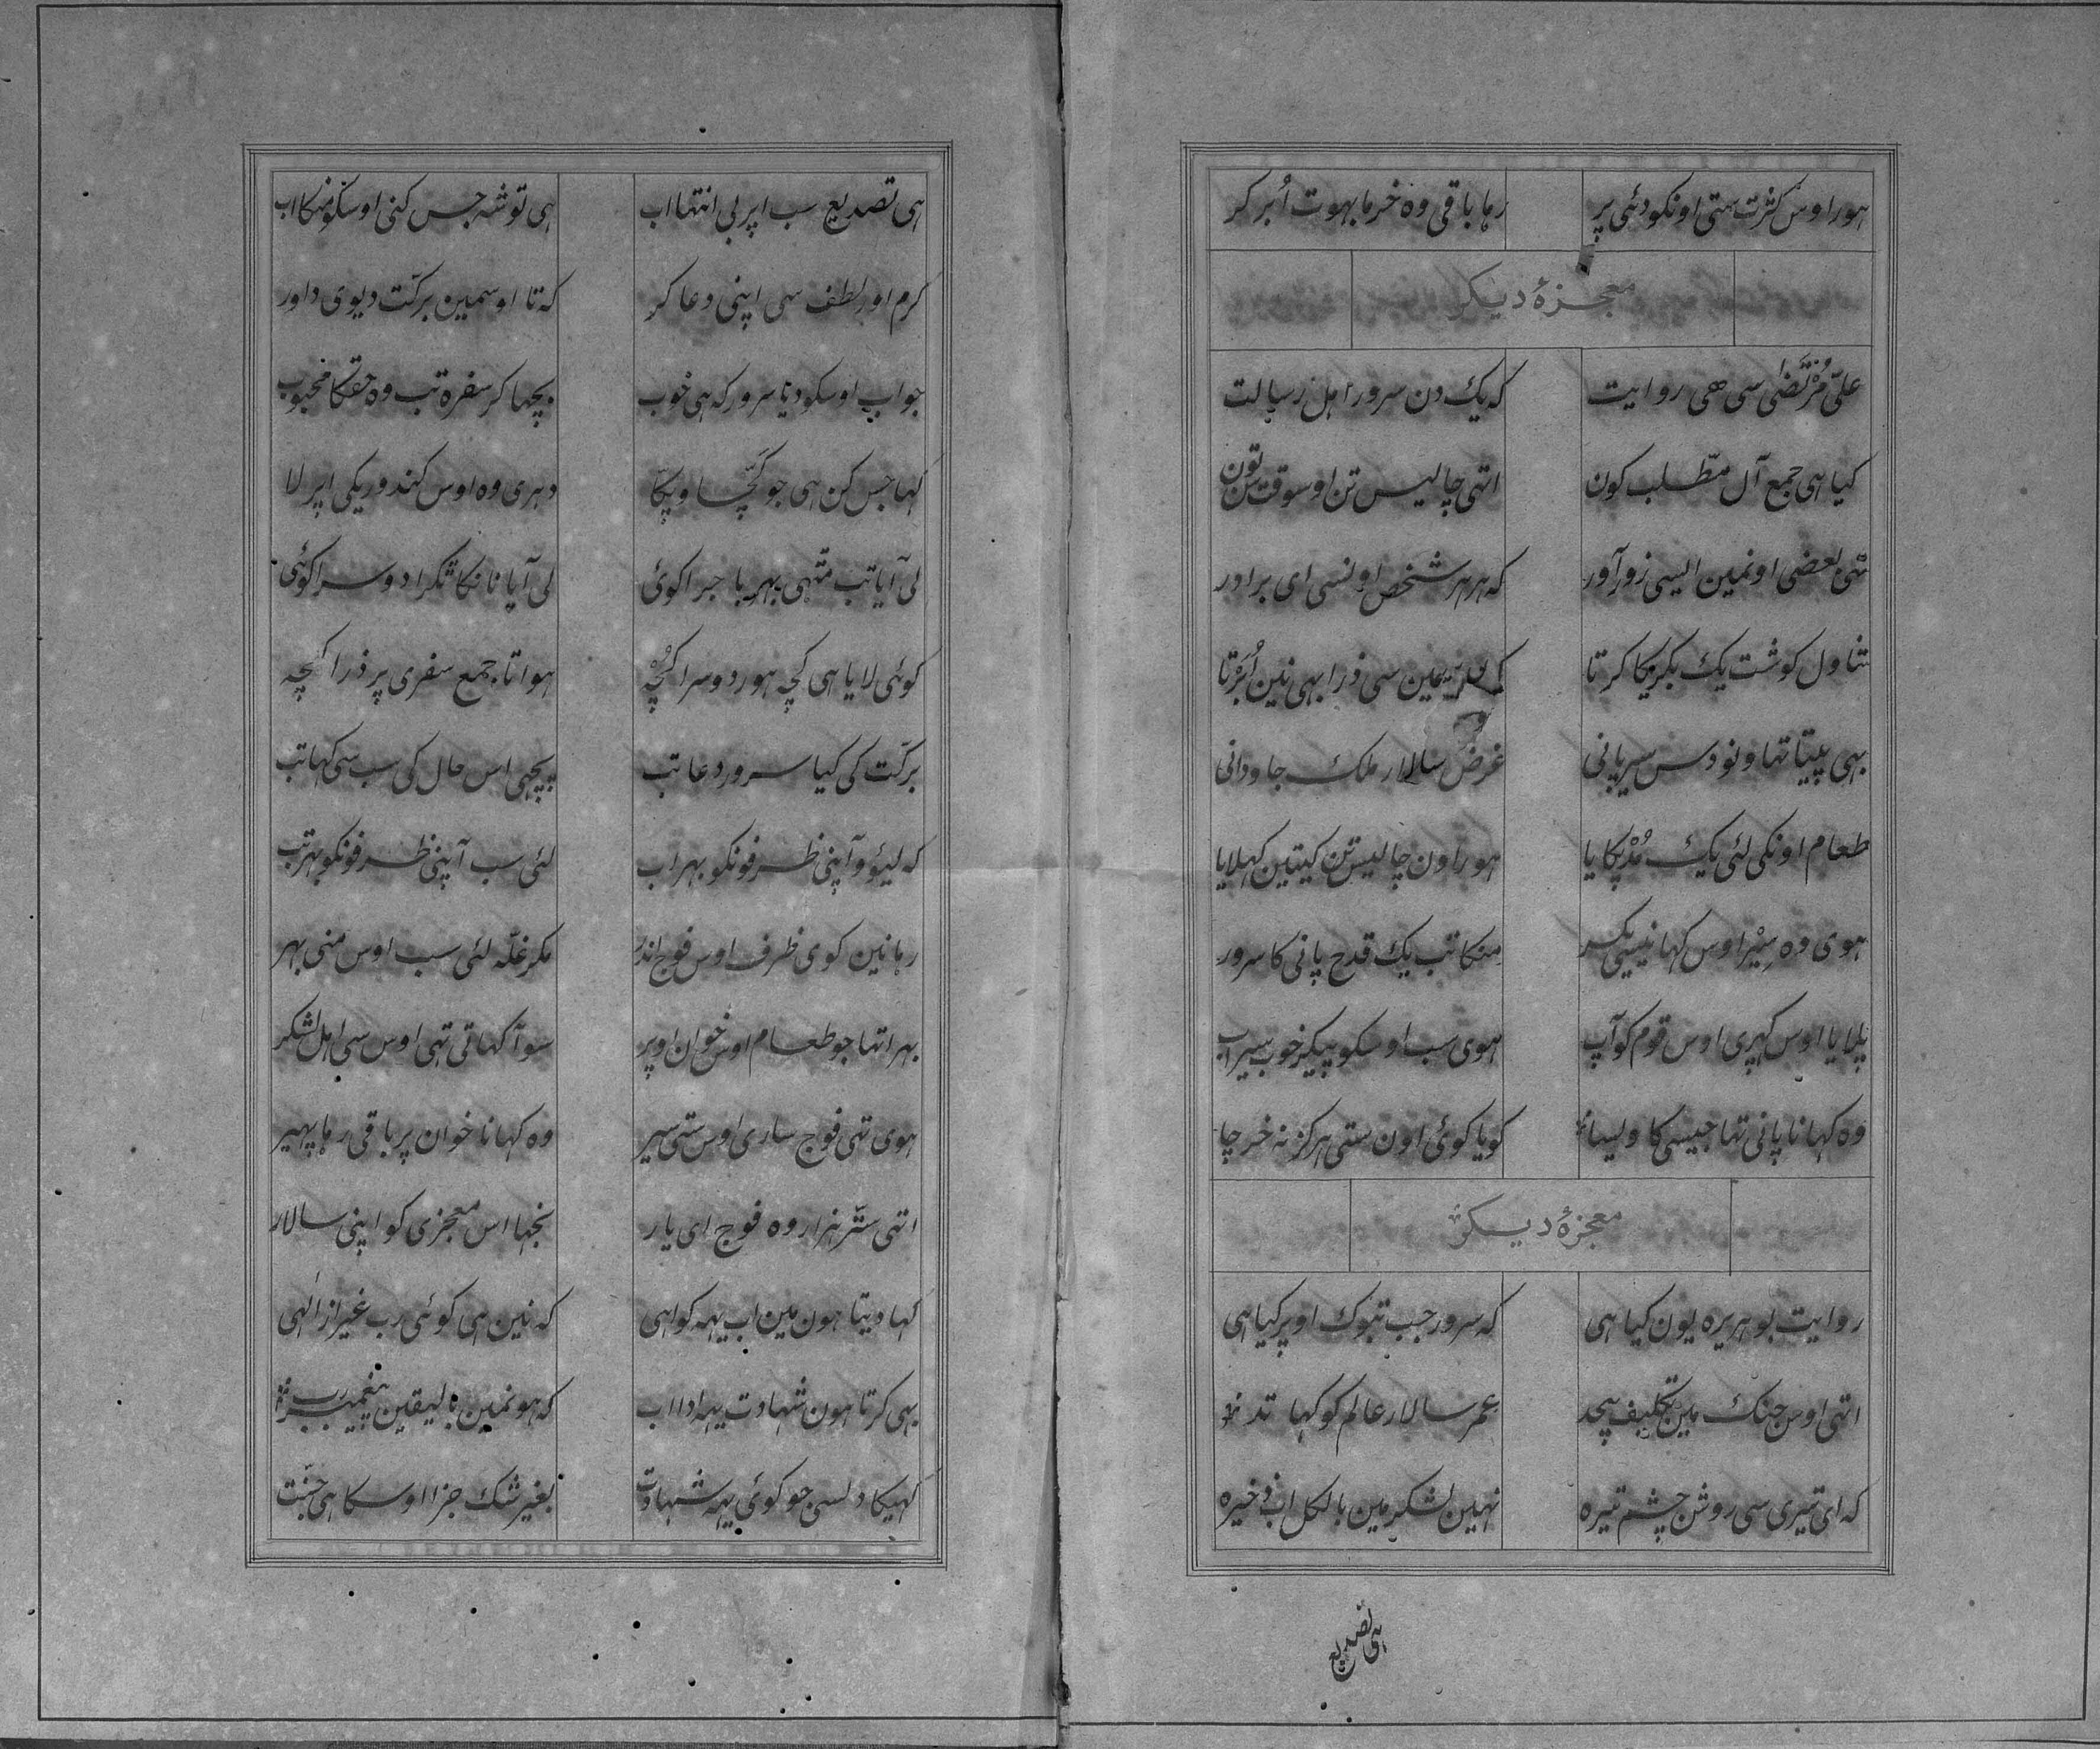 ہور اوس کثرت ستی اونکو دئی پر رہا باقی وہ خرما بہوت اُبر کر
معجزۂ دیکر
علیّ مُرْتَضٰی سی ھی روایت که یك دن سرور اہل رسالت
کیا ہی جمع آل مطّلب کون اتہی چالیس تن اوسوقت تون
تہی بعضی اونمین ایسی زورآور که ہر ہر شخص اونسی ای برادر
تناول کوشت یك بکریکا کرتا سی ذرا بہی نین اُبَرْتا
بہی پیتا تہا ونو دس سیر پانی غرض سالار ملك جاودانی
طعام اونکی لئی یك مُدْ پکایا ہور اون چالیس تن کیتین کہلایا
ہوی وہ سِیْر اوس کہانیسی یکسر منکا تب یك قدح پانی کا سرور
پلایا اوس کہری اوس قوم کو آپ ہوی سب اوسکو پیکر خوب سیراب
وہ کہانا پانی تہا جیسی کا ویسا کویا کوئی اون ستی ہرکز نه خرچا
معجزۂ دیکر
روایت بوہریرہ یون کیا ہی که سرور جب تبوك اوپر کیا ہی
اتہی اوس جنك مین تکلیف بیحد عمر سالار عالم کو کہا تد
که ای تیری سی روشن چشم تیرہ نہین لشکر مین بالکل اب ذخیرہ
ہی تصدیع
ہی تصدیع سب اپر بی انتہا اب ہی توشه جس کنی اوسکو منکا اب
کرم اور لطف سی اپنی دعا کر که تا اوسمین برکت دیوی داور
جواب اوسکو دیا سرور که ہی خوب بچہا کر سفرہ تب وہ حقکا محبوب
کہا جس کن ہی جو کچّا و پکا دہری وہ اوس کندوریکی اپر لا
لی آیا تب متہی بہر باجرا کوئی لی آیا نانکا تکرا دوسرا کوئی
کوئی لایا ہی کچہ ہور دوسرا کُچْہ ہوا تا جمع سفری پر ذرا کچہ
برکت کی کیا سرور دعا تب پچہی اس حال کی سب سی کہا تب
که لیئو و آپنی ظرفونکو بہر اب لئی سب آپنی ظرفونکو بہر تب
رہا نین کوی ظرف اوس فوج اندر مکر غلّہ لئی سب اوس منی بہر
بہرا تہا جو طعام اوس خوان اوپر سو آ کہاتی تہی اوس سی اہل لشکر
ہوی تہی فوج ساری اوس ستی سیر وہ کہانا خوان پر باقی رہا پہیر
اتہی ستّر ہزار وہ فوج ای یار بجہا اس معجزی کو اپنی سالار
کہا دیتا ہون مین اب یہه کواہی که نین ہی کوئی رب غیر از الٰہی
بہی کرتا ہون شہادت یہه ادا اب که ہونمین بالیقین پیغمبر رب
کہیکا دلسی جو کوئی یہه شہادت بغیر شك جزا اوسکا ہی جنّت